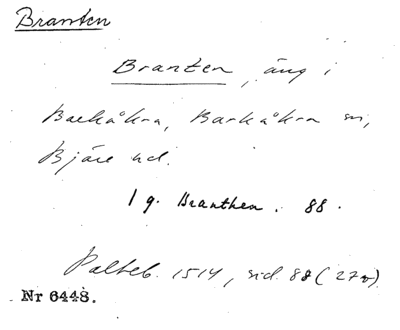 Branten
Branten, äng i
Barkåkra, Barkåkra sn,
Bjäre hd.
1 g. Branthen. 88.
Palteb. 1514, sid. 88 (27v)
Nr 6448.